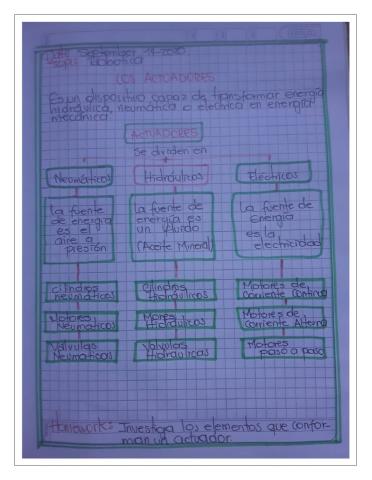 Date September 11-2020
Topic Robotica
LOS ACTUADORES
Es un dispositivo capaz de transformar energia
hidraulica, neumática o electrica en energia
mecánica.
ACTUADORES
Se dividen en
Neumáticos
Hidráulicos
Electricos
La fuente
de energia
es el
aire a
presión
La fuente de
energia es
un fluido
(Aceite Mineral)
La fuente de
Energia
es la
electricidad
Cilindros
neumáticos
Motores
Neumáticos
Valvulas
Neumáticas
Cilindros
Hidráulicos
Mores
Hidráulicos
Valvulas
Hidraulicas
Motores de
corriente Continua
Motores de
corriente Alterna
Motores
paso a paso
Homework: Investiga los elementos que confor-
man un actuador.